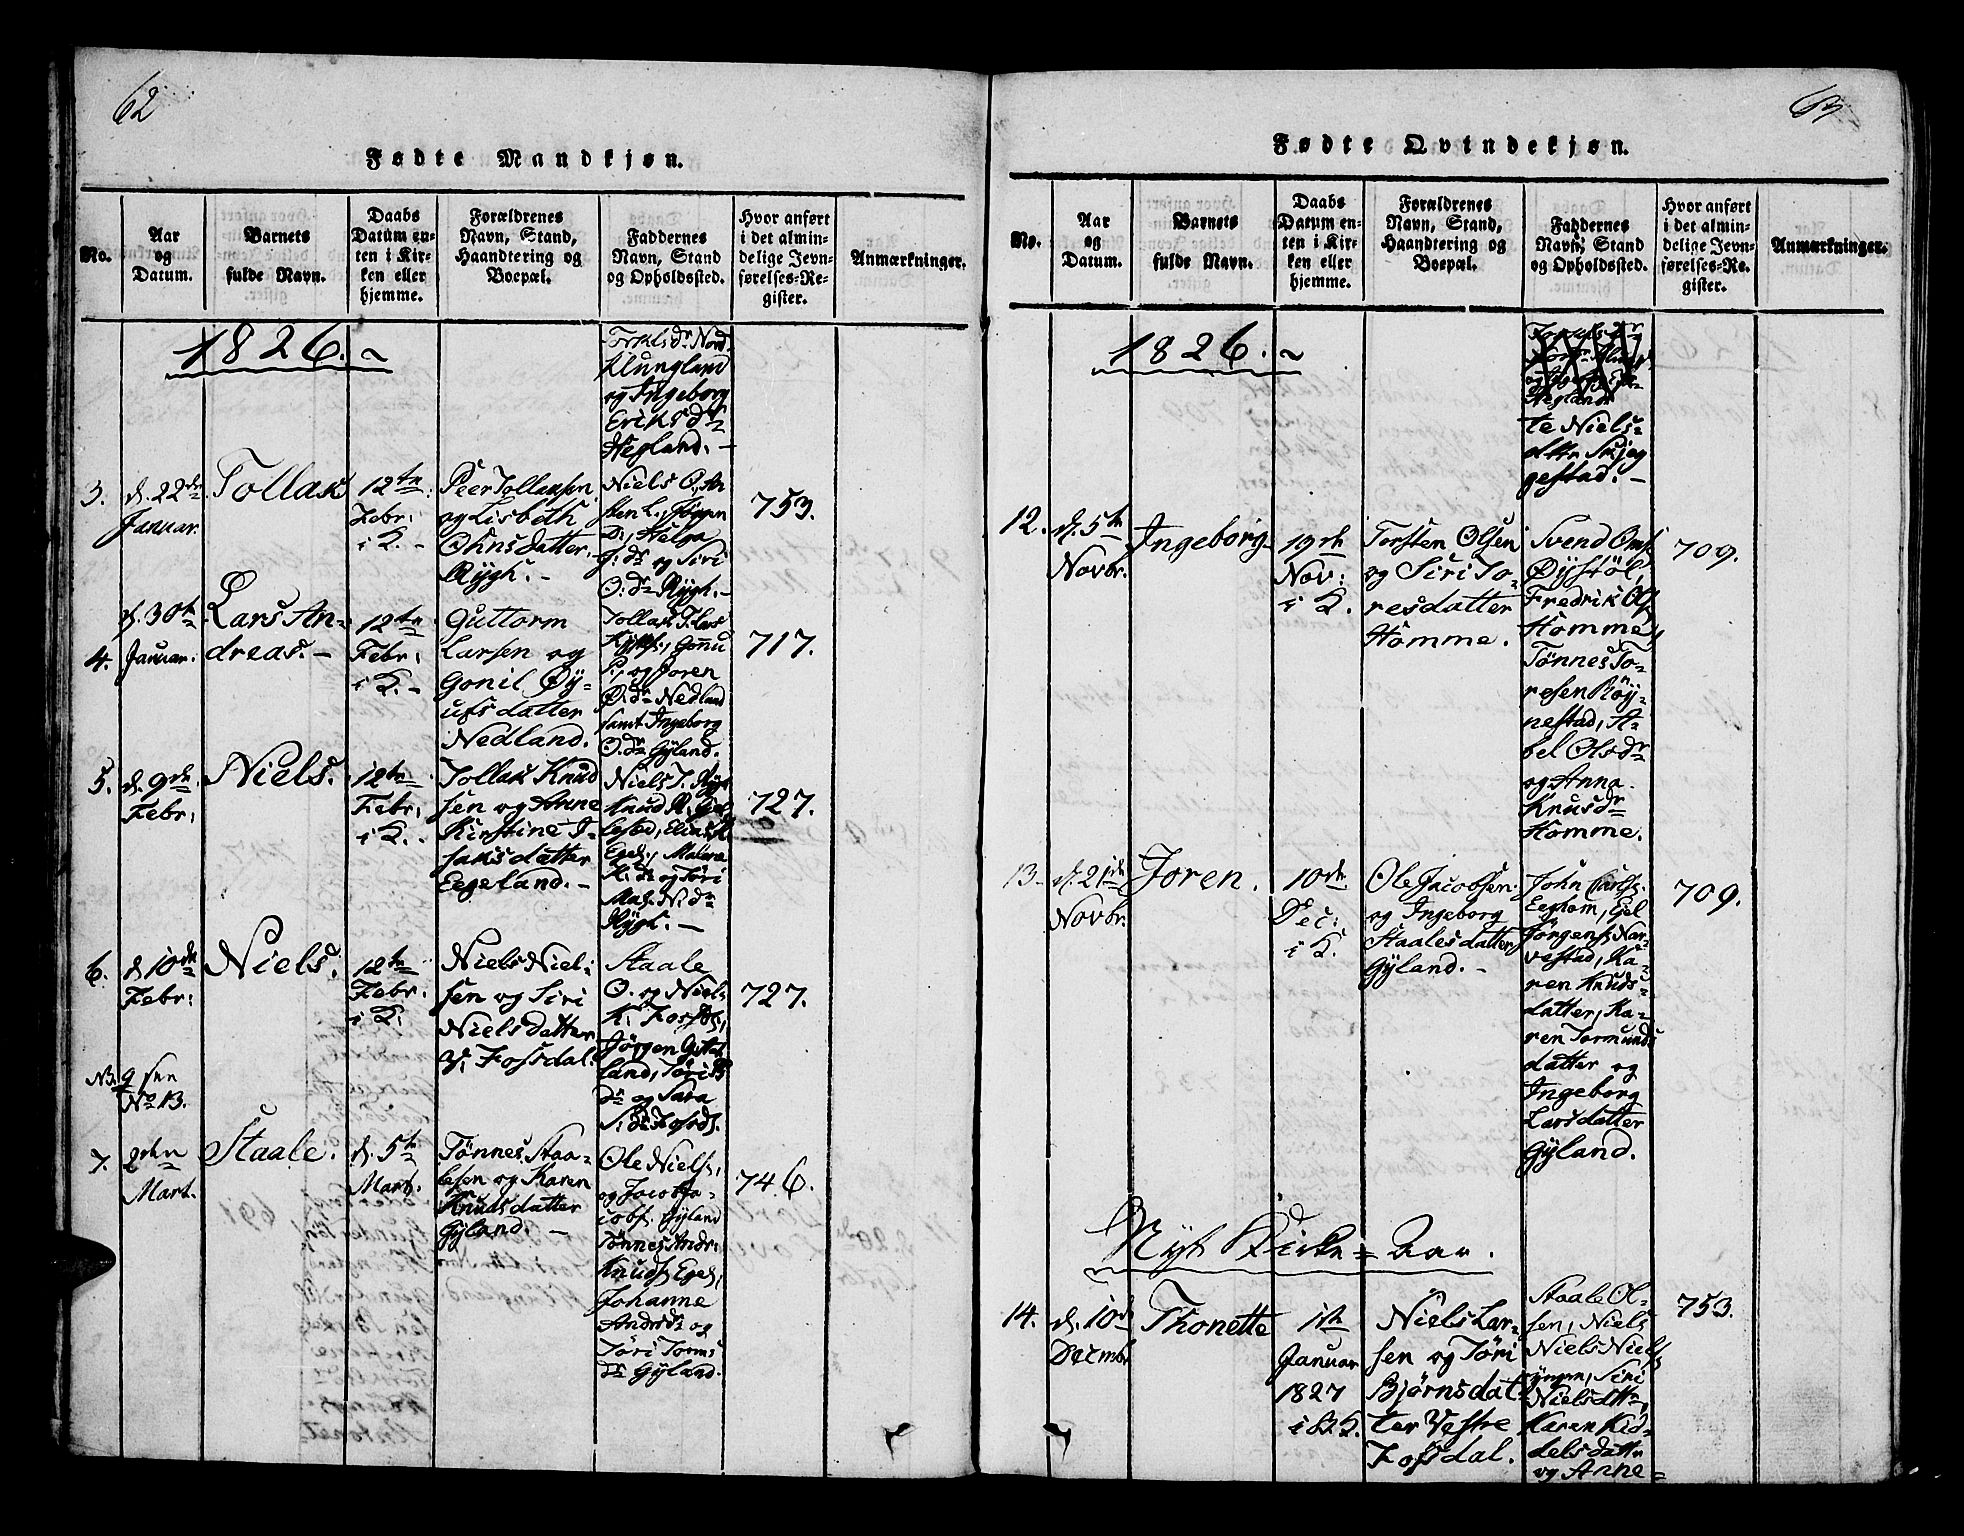 62
Fødte Mandkjøn.
No.
Aar
og
Datum.
Barnets
fulde Navn.
Daabs
Datum en-
ten i Kir-
ken eller
hjemme.
Forældrenes
Navn, Stand,
Haandtering og
Boepæl.
Faddernes
Navn, Stand
og Opholdssted.
Hvor anført
i det almin-
delige Jevn-
førelses-Re-
gister.
Anmærkninger.
1826.
Nord-
Klungland
og Ingeborg
Eriksdr
Hegland.
3.
d. 22de
Januar.
Tollak
12te
Febr:
i K.
Peer Tollaksen
og Lisbeth
Ohnsdatter
Rygh.
Niels O., An
Jørgen
D., Helga
J: dr og Siri
O: dr Rygh.
753.
4.
d. 30te
Januar:
Lars An-
dreas.
12te
Febr:
i K.
Guttorm
Larsen og
Gonil Øy-
ufsdatter
Nedland.
Tollak T. Lars
og Joren
Ø: dr Nedland
samt Ingeborg
O: dr Gyland.
717.
5.
d. 9de
Febr:
Niels.
12te
Febr:
i K.
Tollak Knud
sen og Anne
Kirstine I-
saksdatter
Eegeland.
Niels T. Ryg
Knud R.
Malene
K: dr og Tøri
N: dr
Rygh.
727.
6.
d 10de
Febr:
Niels.
12te
Febr:
i K:
Niels Niel:
sen og Siri
Nielsdatter
V: Fossdal.
Staale
O. og Niels
K:
Jørgen
land, Tøri
dr og Sara
S: dr Fosd.
727.
NB. 9 sen
No 13.
7.
2den
Mart.
Staale.
d. 5te
Mart.
Tønnes Staa-
lesen og Karen
Knudsdatter
Gyland.
Ole Niels.
og Jacob Ja-
cobs. Gyland
Tønnes Andr:
Knuds. Egel.,
Johanne
Andrsdr og
Tøri Torms
dr Gyland.
746.
63
Fødte Qvindekjøn.
No.
Aar
og
Datum.
Barnets
fulde Navn.
Daabs
Datum en-
ten i Kir-
ken eller
hjemme.
Forældrenes
Navn, Stand,
Haandtering og
Boepæl.
Faddernes
Navn, Stand
og Opholdssted.
Hvor anført
i det almin-
delige Jevn-
førelses-Re-
gister.
Anmærkninger.
1826.
te Niels-
dttr Skjeg
gestad.
12.
d. 5te
Novbr.
Ingeborg
19de
Nov:
i K.
Torsten Olsen
og Siri To-
resdatter
Homme.
Svend Oms.
Øystøl,
Fredrik Ols.
Homme,
Tønnes To-
resen Røy-
nestad, A-
bel Olsdr
og Anna
Knusdr
Homme.
709.
13.
d. 21de
Novbr.
Joren.
10de
Dec:
i K.
Ole Jacobsen
og Ingeborg
Staalesdatter
Gyland.
John Carls.
Eeghom, Eyel
Jørgens. Nar-
vestad, Ka-
ren Knuds-
datter, Ka-
ren Tormunds
datter og
Ingeborg
Larsdatter
Gyland.
709.
Nyt Kirke-Aar.
14.
d. 10de
Decmbr
Thonette
1ste
Januar
1827
i B. K.
Niels Lar-
sen og Tøri
Bjørnsdat-
ter Vestre
Fossdal.
Staale Ol-
sen, Niels
Niels Niels.
yngre, Siri
Nielsdttr,
Karen Kid-
delsdattr
og Anne-
753.